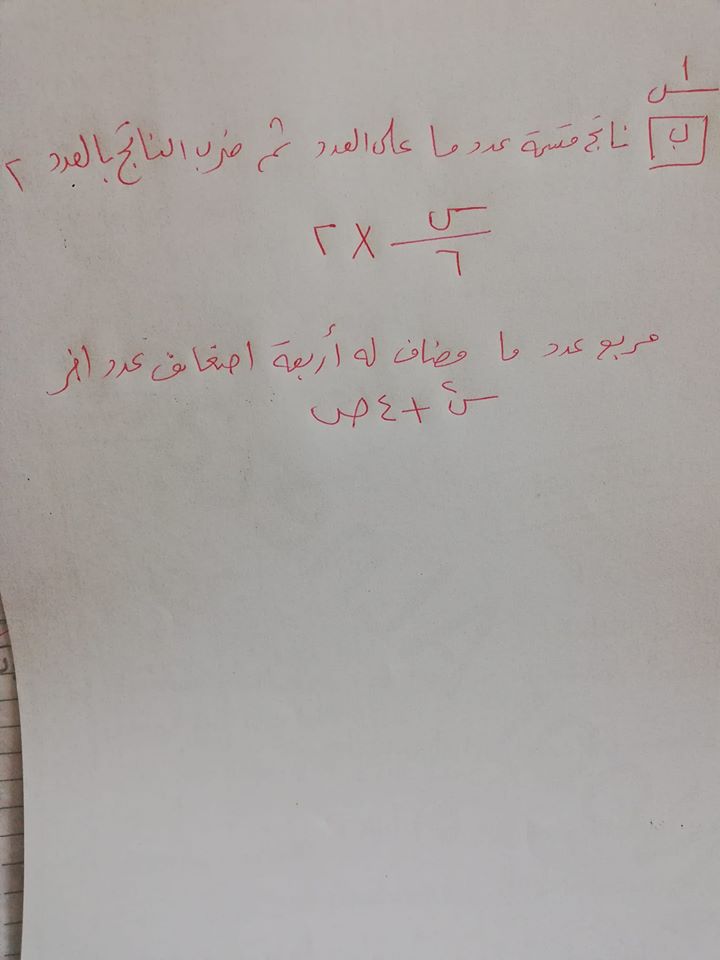 س١
ب ناتج قسمة عدد ما على العدد ثم ضرب الناتج بالعدد ٢
س/٦ × ٢
مربع عدد ما مضاف له أربعة اضعاف عدد اخر
س٢ + ٤ص